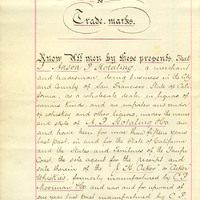 of
Trade-marks.
Know All men by these presents, That
I, Anson P. Hotaling, a merchant
and tradesman, doing business in the City
and County of San Francisco, State of Cali-
fornia, as wholesale dealer in liquors of
various kinds, and an importer and vendor
of whiskey and other liquors, under the name
and style of A. P. Hotaling & Co. am
and have been for more than fifteen years
last past in and for the State of California
and the States and Territories of the Pacific
Coast, the sole agent for the receipt and
sale therein of the J. H. Cutter
Whiskies, formerly manufactured by C. P.
Moorman & Co. and was and for upward of
one year last past manufactured by C. P.